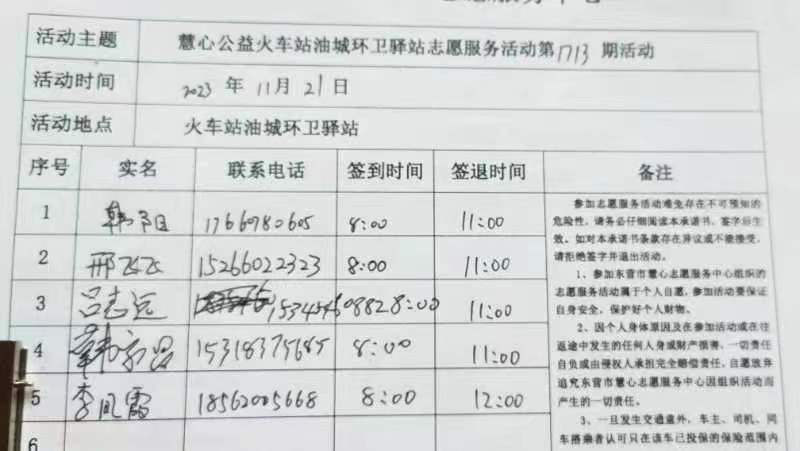 活动主题 慧心公益火车站油城环卫驿站志愿服务活动第1713期活动
活动时间 2023 年 11月 21日
活动地点 火车站油城环卫驿站
序号 实名 联系电话 签到时间 签退时间 备注
1 17669780605 8:00 11:00
2 邢飞飞 15266022323 8:00 11:00
3 吕志远 15345460882 8:00 11:00
4 15318375685 8:00 11:00
5 李凤霞 18562005668 8:00 12:00
6
参加志愿服务活动难免存在不可预知的
危险性,请务必仔细阅读本承诺书,签字后生
效。如对本承诺书条款存在异议或不能接受,
请拒绝签字并退出活动。
1、参加东营市慧心志愿服务中心组织的
志愿服务活动属于个人自愿,参加活动要保证
自身安全,保护好个人财物。
2、因个人身体原因及在参加活动或在往
返途中发生的任何人身或财产损害,一切责任
自负或由侵权人承担完全赔偿责任,自愿放弃
追究东营市慧心志愿服务中心因组织活动而
产生的一切责任。
3、一旦发生交通意外,车主、司机、同
车搭乘者认可只在该车已投保的保险范围内